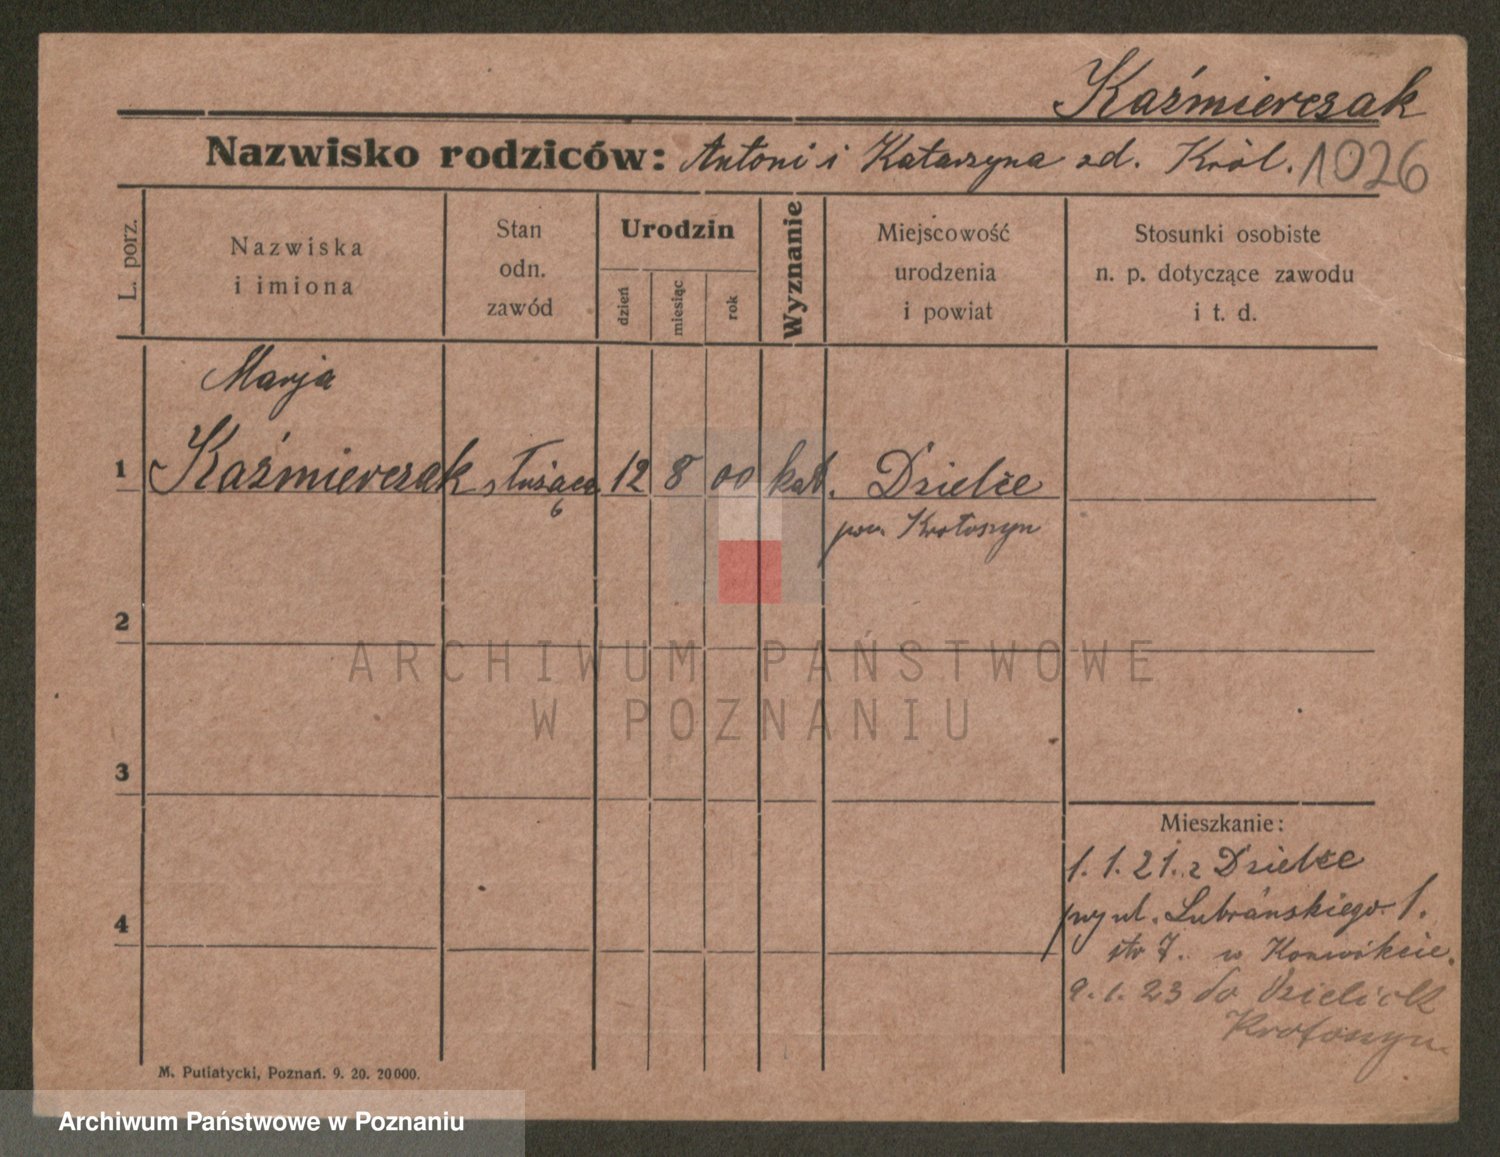 Kaźmierczak
Nazwisko rodziców: Antoni i Katarzyna zd. Król. 1026
L. porz.
Nazwiska
i imiona
Stan
odn.
zawód
Urodzin
dzień
miesiąc
rok
Wyznanie
Miejscowość
urodzenia
i powiat
Stosunki osobiste
n. p. dotyczące zawodu
i t. d.
Marja
1 Kaźmierczak służąca 12 8 00 kat. Dzielice
pow. Krotoszyn
2
3
4
Mieszkanie:
1.1.21. z Dzielice
przy ul. Lubrańskiego 1.
w Konwikcie.
9.1.23 do Dzielic
Krotoszyn.
M. Putiatycki, Poznań. 9. 20. 20000.
ARCHIWUM PAŃSTWOWE
W POZNANIU
Archiwum Państwowe w Poznaniu